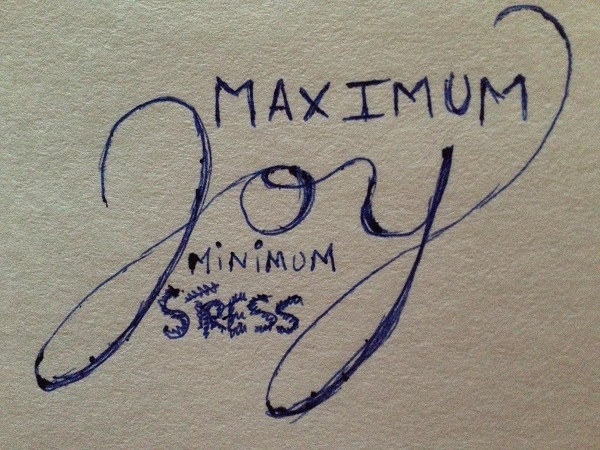 MAXIMUM
Joy
MiNiMUM
STRESS